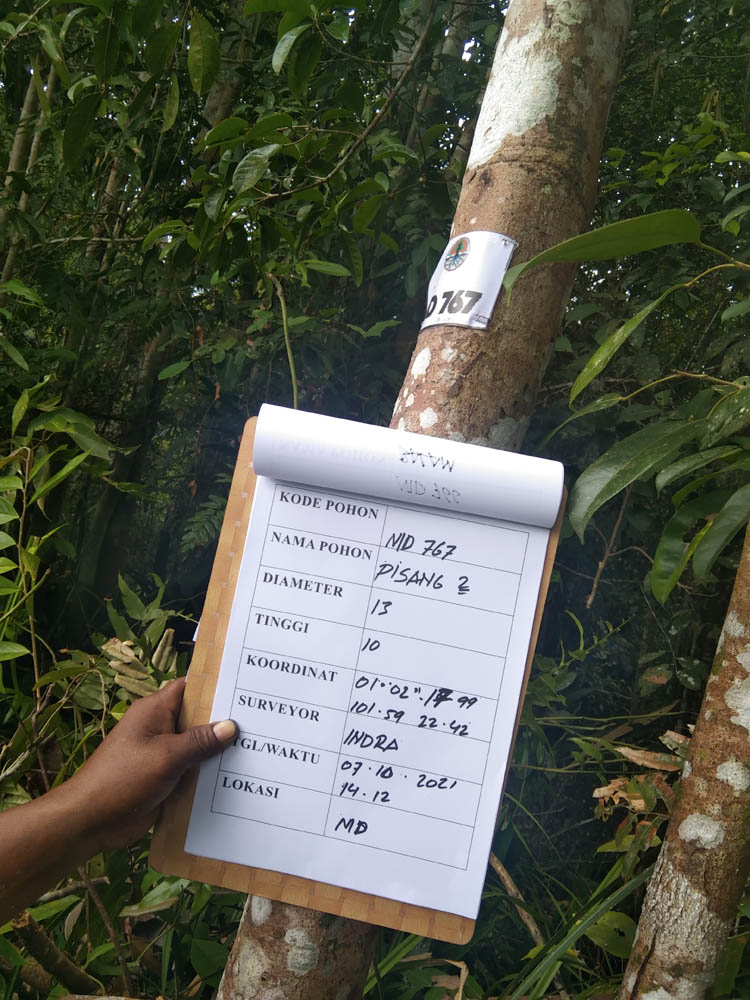 D 767
KODE POHON MD 767
NAMA POHON PISANG 2
DIAMETER 13
TINGGI 10
KOORDINAT 01° 02" 17 99
101. 59 22. 42
SURVEYOR INDRA
TGL/WAKTU 07. 10. 2021
14. 12
LOKASI MD